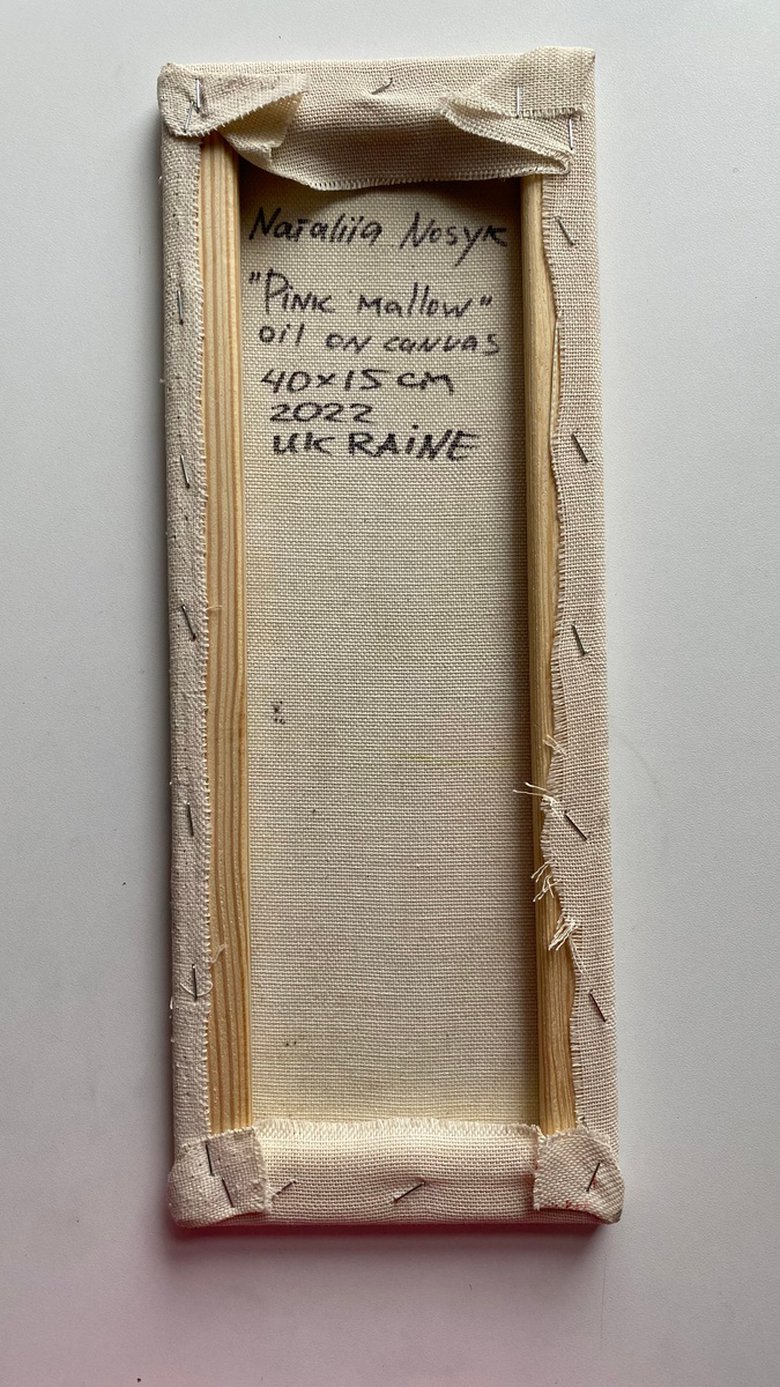 Nataliia Nosyk
"Pink mallow"
oil on canvas
40x15 cm
2022
UKRAINE